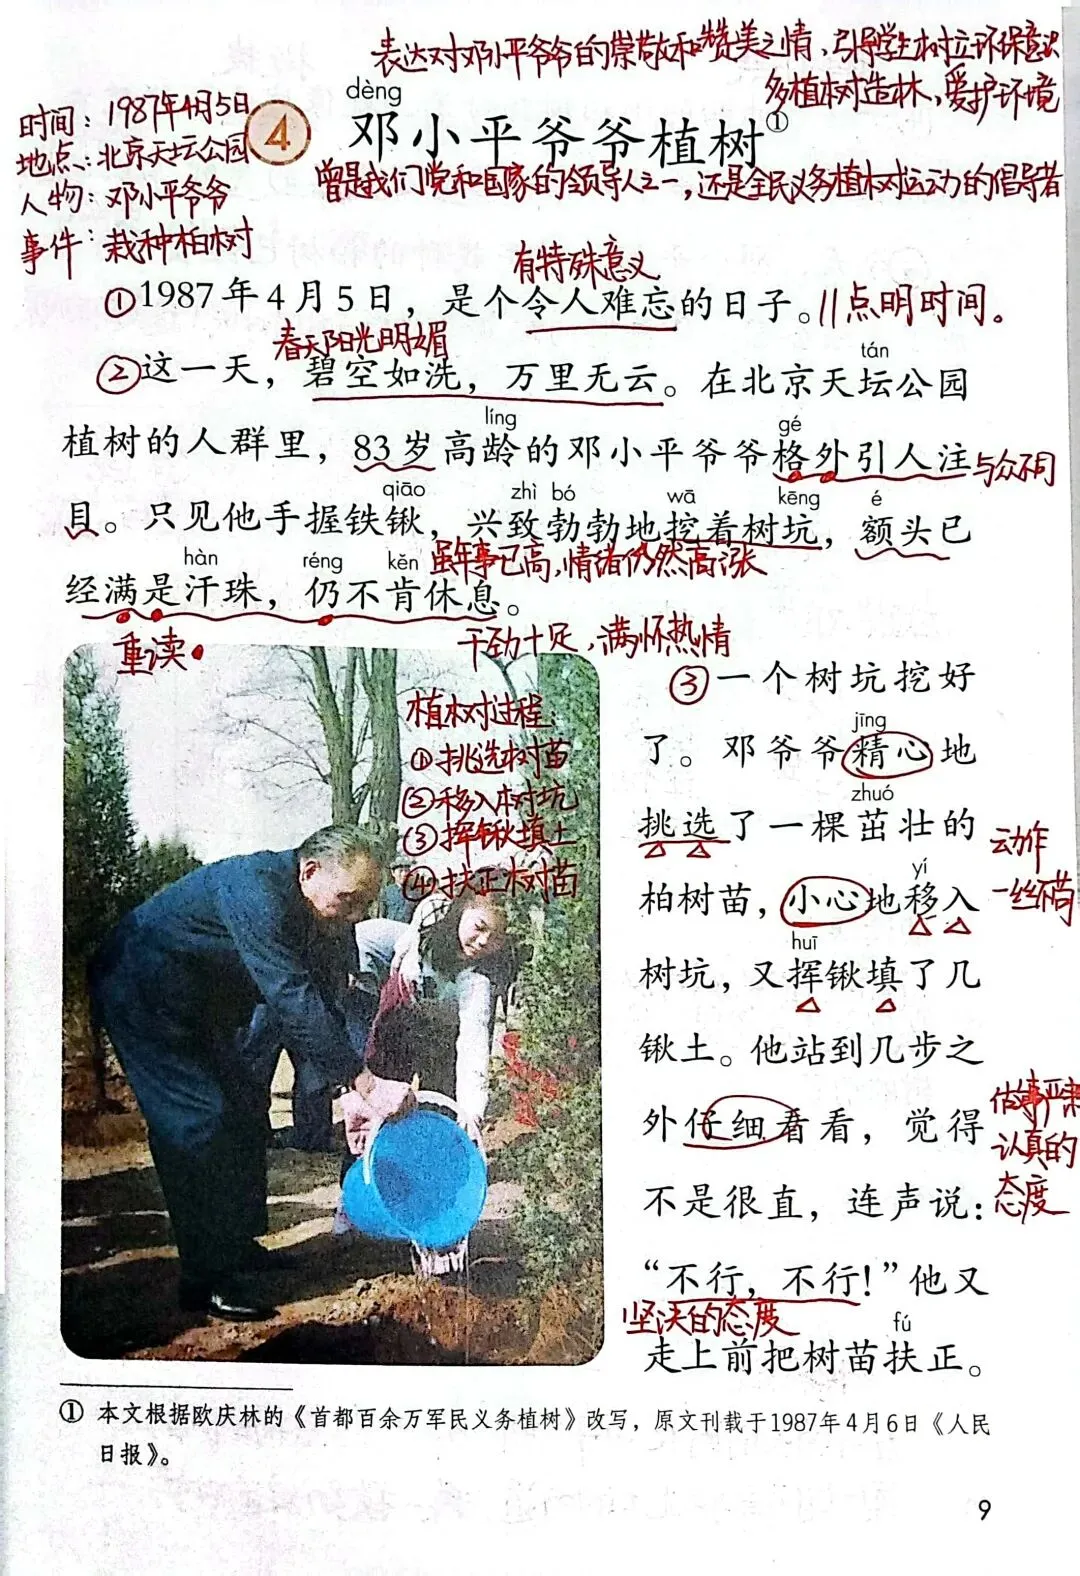 表达对邓小平爷爷的崇敬和赞美之情、引导学生树立环保意识
多植树造林，爱护环境
时间：1987年4月5日
地点：北京天坛公园
人物：邓小平爷爷
事件：栽种柏树
4
dèng
邓小平爷爷植树①
曾是我们党和国家的领导人之一，还是全民义务植树运动的倡导者
有特殊意义
①1987年4月5日，是个令人难忘的日子。//点明时间。
春天阳光明媚
tán
②这一天，碧空如洗，万里无云。在北京天坛公园
líng gé
植树的人群里，83岁高龄的邓小平爷爷格外引人注
与众不同
qiāo zhì bó wā kēng é
目。只见他手握铁锹，兴致勃勃地挖着树坑，额头已
虽年事已高，情绪仍然高涨
hàn réng kěn
经满是汗珠，仍不肯休息。
重读
干劲十足，满怀热情
植树过程：
①挑选树苗
②移入树坑
③挥锹填土
④扶正树苗
③一个树坑挖好
jīng
了。邓爷爷精心地
zhuó
挑选了一棵茁壮的
动作
一丝不苟
yí
柏树苗，小心地移入
huī
树坑，又挥锹填了几
锹土。他站到几步之
外仔细看看，觉得
做事严肃
认真的
态度
不是很直，连声说：
“不行，不行！”他又
坚决的态度
fú
走上前把树苗扶正。
① 本文根据欧庆林的《首都百余万军民义务植树》改写，原文刊载于1987年4月6日《人民
日报》。
9